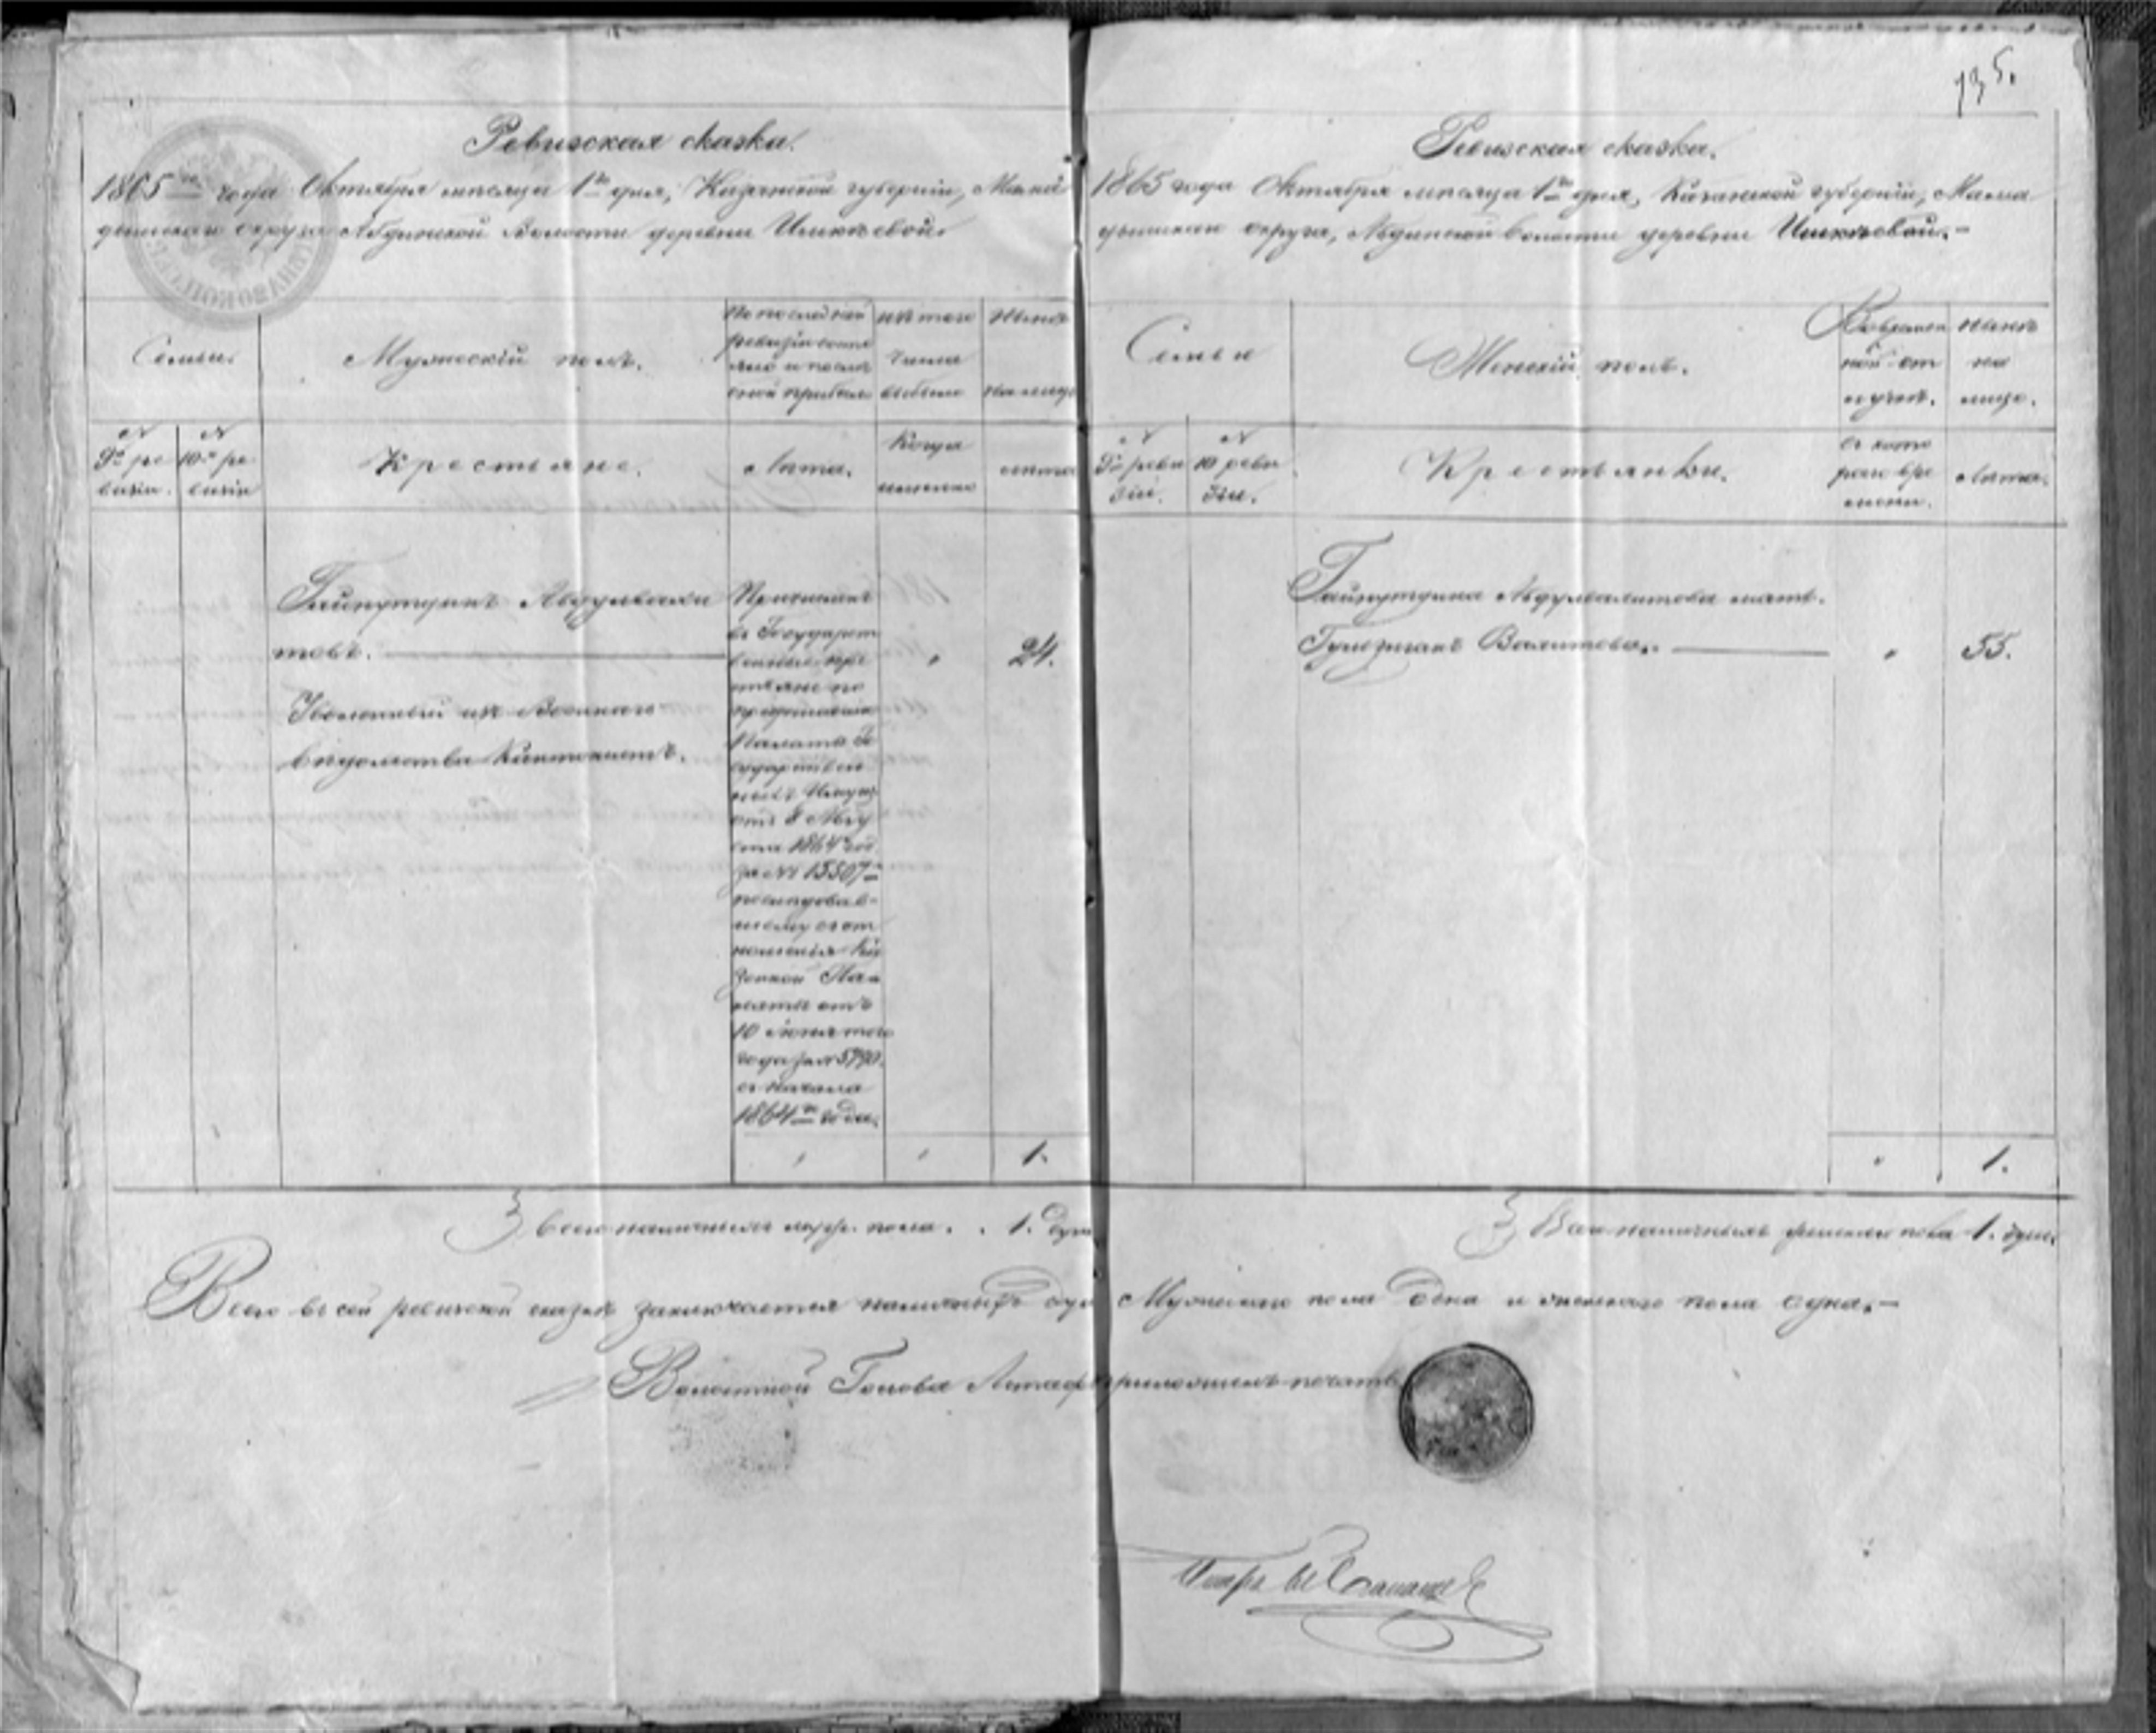 135.
Ревизская сказка.
1865го года Октября месяца 1го дня, Казанской губернiи, Мама
дышскаго округа Абдинской Волости деревни Ишкѣевой.
Семьи.
Мужескiй полъ.
По последней
ревизiи состо
яло и послѣ
оной прибыло
изъ того
числа
выбыло
Нынѣ
на лицо
№
9й ре
визiи.
№
10й ре
визiи
Крестьяне.
Лѣта.
Когда
именно
лѣта
Гайнутдинъ Абдулвали
товъ.
24.
Уволенный изъ Военнаго
вѣдомства Кантонистъ.
Причисленъ
въ Государст
венные кре
стьяне по
предписанiю
Палаты Го
сударствен
ныхъ Имущ
отъ 8 Авгу
ста 1864 год.
за № 15507м
последовав-
шему съ от
ношенiя Ка
зенной Па-
латы отъ
10 Июня того
года за № 5790.
съ начала
1864го года.
1.
Всего наличныхъ муж. пола . . 1. душ
Ревизская сказка.
1865 года Октября месяца 1го дня, Казанской губернiи, Мама
дышскаго округа, Абдинской волости деревни Ишкѣевой.-
Семьи
Женскiй полъ.
Во времен
ной от
лучкѣ.
нынѣ
на
лицо.
№
9й реви
зiи.
№
10 реви
зiи.
Крестьянки.
съ кото
раго вре
мени.
Лѣта.
Гайнутдина Абдулвалитова мать.
Валитова.
55.
1.
Всего наличныхъ женскаго пола 1. душа
Всего въ сей ревизской сказкѣ заключается наличныхъ душ Мужескаго пола одна и женскаго пола одна.-
Волостной Голова приложилъ печать